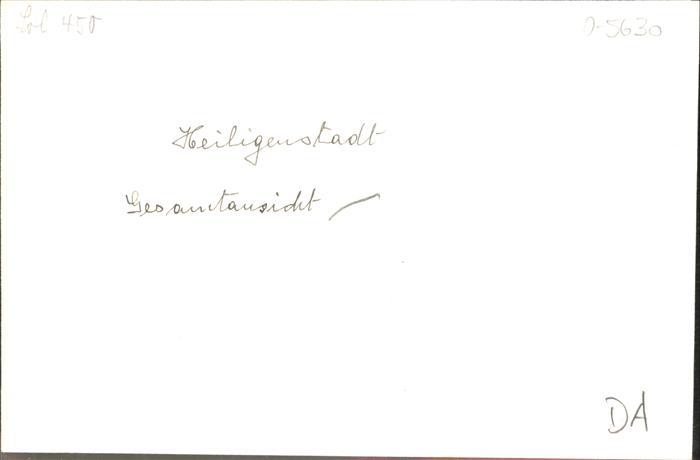 Lol 450
D-5630
Heiligenstadt
Gesamtansicht
DA